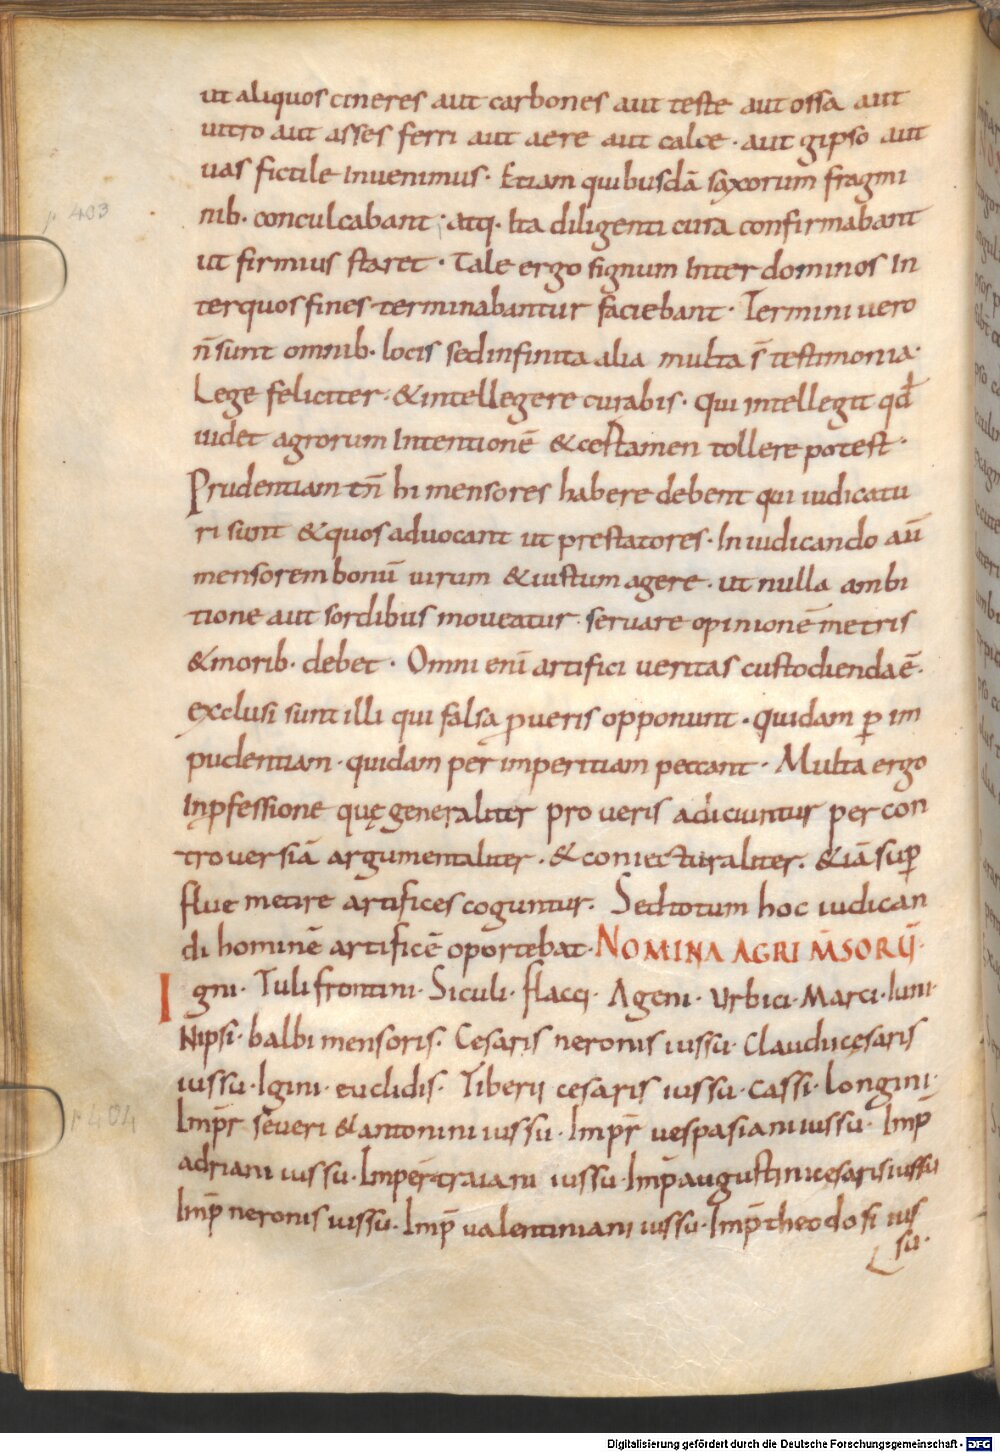 ut aliquos cineres aut carbones aut teste aut ossa aut
uitro aut asses ferri aut aere aut calce · aut gipso aut
uas fictile Inuenimus · Etiam quibusdā saxorum fragmi
nib· conculcabant ; atq· Ita diligenti cura confirmabant
ut firmius staret · Tale ergo signum Inter dominos In
terquos fines terminabantur faciebant · Termini uero
n̄ sunt omnib· locis sed infinita alia multa s̄ testimonia·
Lege feliciter · & intellegere curabis · qui intellegit qd̄
uidet agrorum Intentionē & certamen tollere potest ·
Prudentiam tn̄ hi mensores habere debent qui iudicatu
ri sunt & quos aduocant ut prestatores · In iudicando aū
mensorem bonū uirum & iustum agere · ut nulla ambi
tione aut sordibus moueatur · seruare opinionē metris
& morib· debet · Omni enī artifici ueritas custodienda ē·
exclusi sunt illi qui falsa ꝓ ueris opponunt · quidam ꝑ im
pudentiam · quidam per imperitiam peccant · Multa ergo
In ꝓfessione quę generaliter pro ueris adiciuntur per con
trouersiā argumentaliter · & coniecturaliter · & iā suꝑ
flue metire artifices coguntur · Sed totum hoc iudican
di hominē artificē oportebat · NOMINA AGRI M̄SORŪ·
Igni · Tuli frontini · Siculi · flacci · Ageni · urbici · Marci · Iuni·
Nipsi · balbi mensoris · Cesaris neronis iussu · Claudii cesaris
iussu · Igini · euclidis · Tiberij cesaris iussu · cassi · longini·
Imp̄r seueri & antonini iussu · Imp̄r uespasiani iussu · Imp̄
adriani iussu · Imper̄ traiani iussu · Imp̄ augustini cesaris iussu
Imp̄ neronis iussu · Imp̄ ualentiniani iussu · Imp̄ theodosi ius
su·
403
404
Digitalisierung gefördert durch die Deutsche Forschungsgemeinschaft - DFG